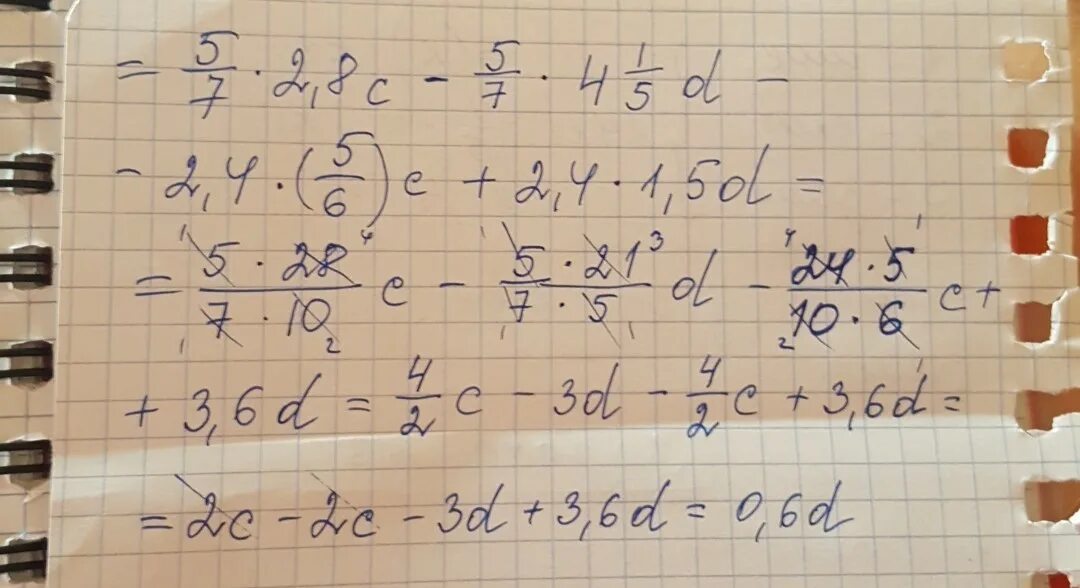 = 5/7 · 2,8c - 5/7 · 4 1/5 d -
- 2,4 · (5/6)c + 2,4 · 1,5d =
= (5 · 28)/(7 · 10) c - (5 · 21)/(7 · 5) d - (24 · 5)/(10 · 6) c +
+ 3,6d = 4/2 c - 3d - 4/2 c + 3,6d =
= 2c - 2c - 3d + 3,6d = 0,6d